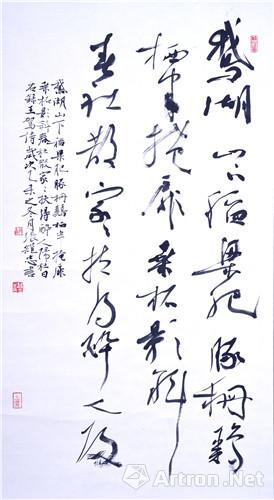 鵝湖山下稻粱肥豚柵雞
栖半掩扉桑柘影斜
春社散家家扶得醉人歸
鵝湖山下稻粱肥豚柵鷄栖半掩扉
桑柘影斜春社散家家扶得醉人歸社日
右錄王駕詩歲次乙未之冬月志書
Artron.Net